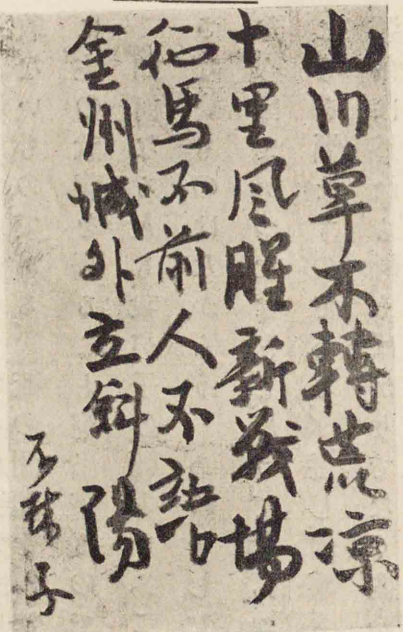 山川草木轉荒涼
十里風腥新戰場
征馬不前人不語
金州城外立斜陽
石林子